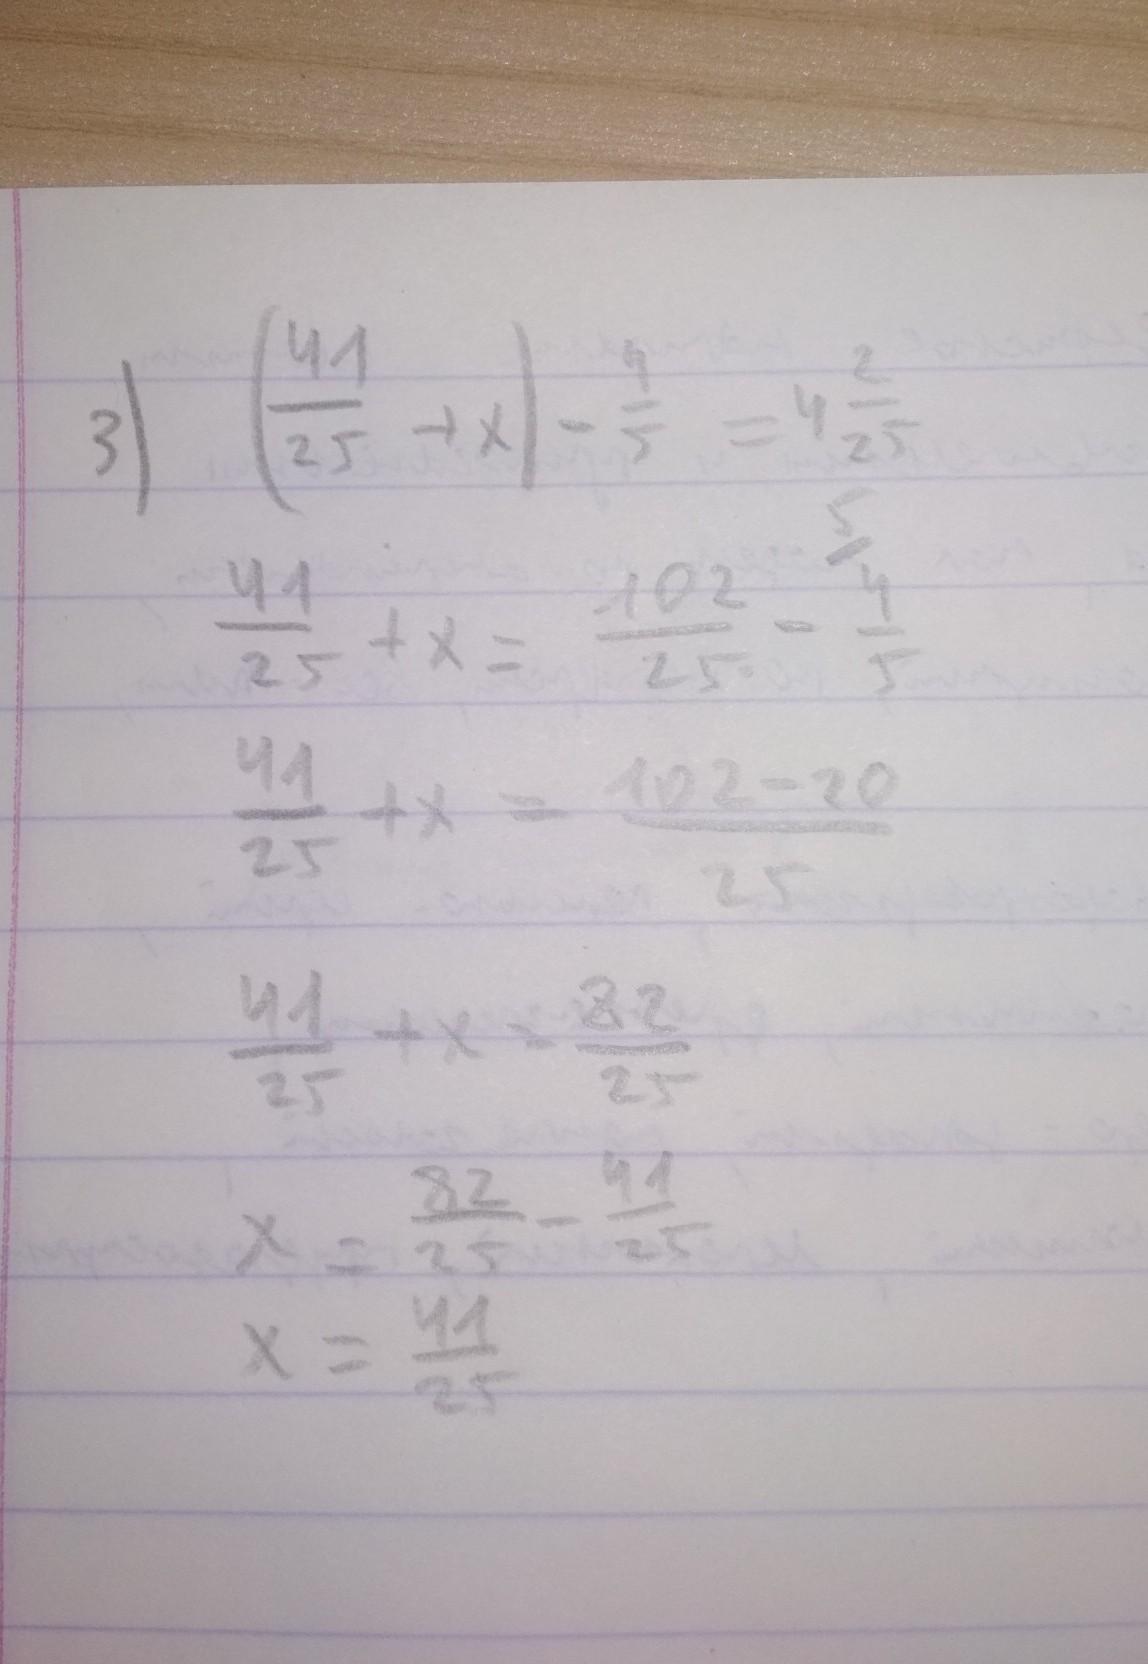 3) (41/25 + x) - 4/5 = 4 2/25
41/25 + x = 102/25 - 4/5 5/
41/25 + x = 102-20/25
41/25 + x = 82/25
x = 82/25 - 41/25
x = 41/25